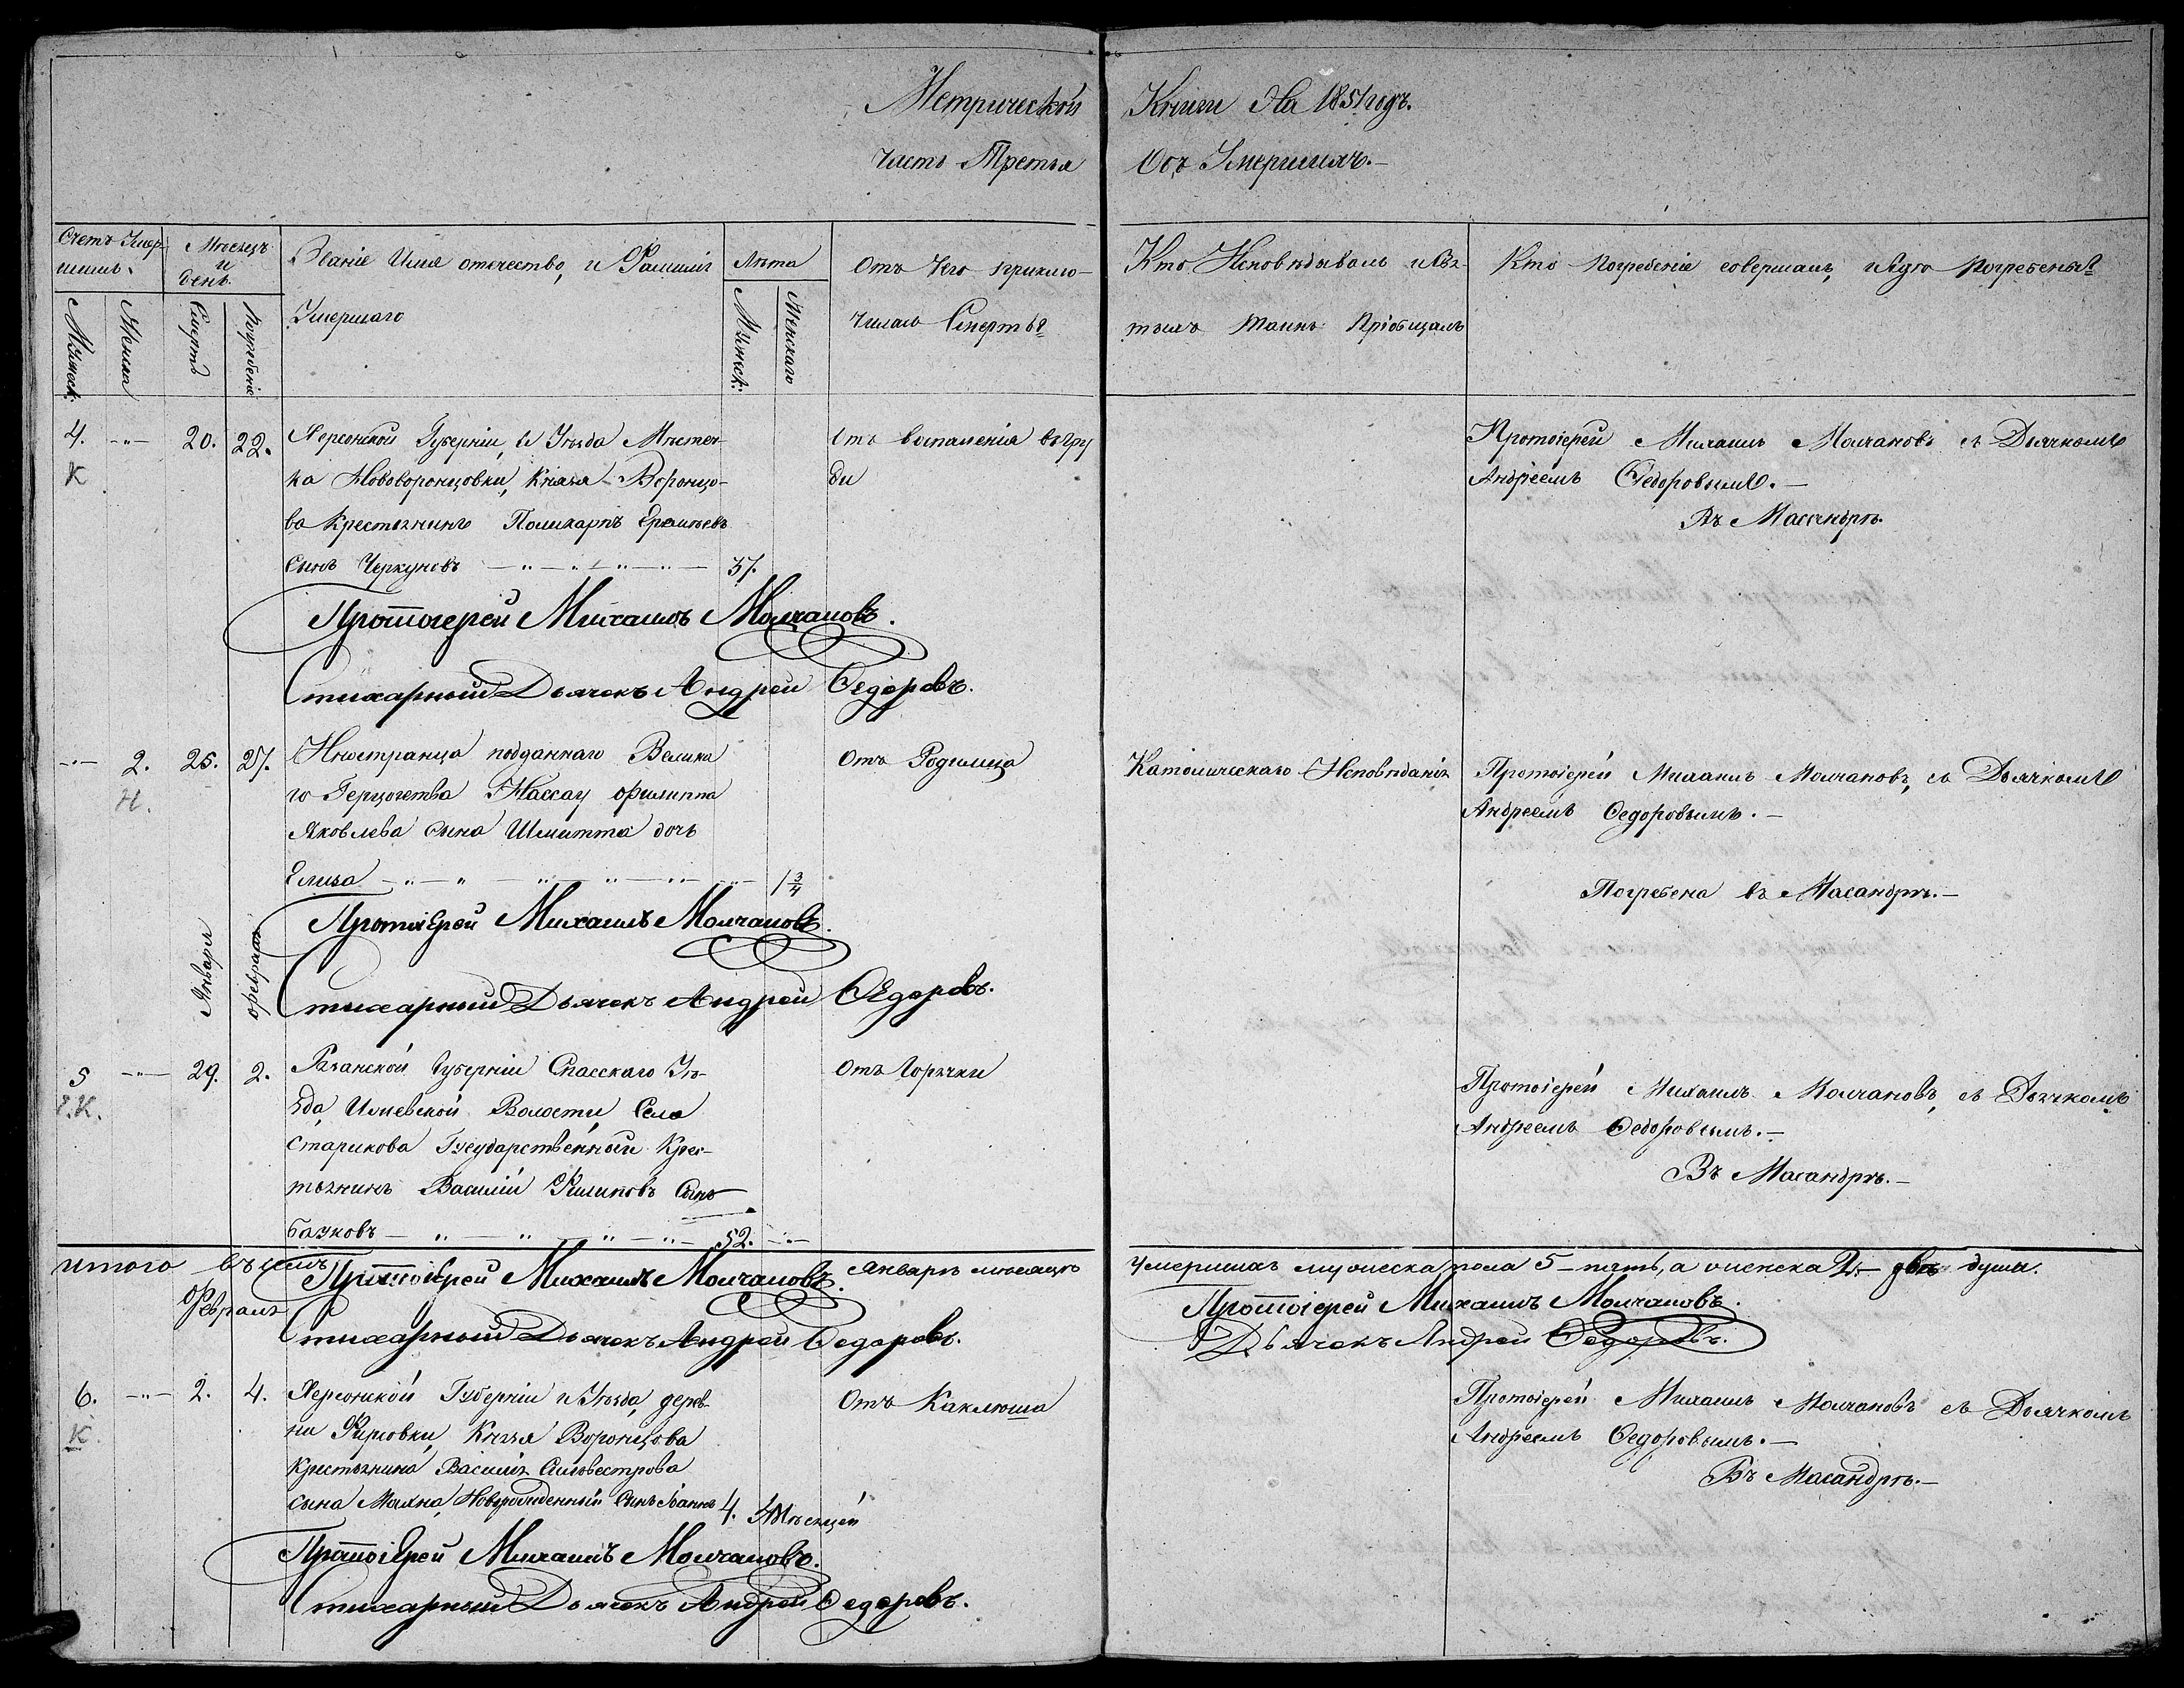 Метрической Книги На 1851 годъ.
Часть Третья Объ Умершихъ.
Счетъ Умер-
шихъ.
Мѣсяцъ
и
день.
Званіе Имя отечество, и Фамилія
Умершаго
Лѣта
Отъ Чего приклю-
чилась Смерть?
Кто Исповѣдывалъ и Свя-
тыхъ Таинъ Пріобщалъ
Кто Погребеніе совершалъ, и гдѣ Погребены?
Мужск:
Женска
Смерть
Погребеніе
Мужеск:
Женскаго
4. -"- 20. 22.
К
Херсонской Губерніи, и Уѣзда Мѣстеч-
ка Нововоронцовки, Князя Воронцо-
ва Крестьянинъ Поликарпъ Еремѣевъ
Сынъ Черкуновъ 37.
Отъ воспаленія въ гру
ди
Протоіерей Михаилъ Молчановъ съ Дьячкомъ
Андреемъ Федоровымъ.-
Въ Массандрѣ.
Протоіерей Михаилъ Молчановъ.
Стихарный Дьячекъ Андрей Федоровъ.
-"- 2. 25. 27.
Н.
Иностранца подданнаго Велика
го Герцогства Нассау Филиппа
Яковлева сына Шмитта дочь
Елиза 1 3/4
Отъ Родимца
Католическаго Исповѣданія
Протоіерей Михаилъ Молчановъ, съ Дьячкомъ
Андреемъ Федоровымъ.-
Погребена въ Масандрѣ.-
Протоіерей Михаилъ Молчановъ.
Стихарный Дьячекъ Андрей Федоровъ.
Января
Февраля
5 -"- 29. 2.
Г.К.
Рязанской Губерніи Спасскаго Уѣ-
зда, Волости, Села
Старикова Государственный Крес-
тьянинъ Василій Филиповъ Сынъ
Базковъ 52.
Отъ Горячки
Протоіерей Михаилъ Молчановъ, съ Дьячкомъ
Андреемъ Федоровымъ.-
Въ Масандрѣ.-
Итого въ семъ Январѣ мѣсяцѣ умершихъ мужеска пола 5 - пять, а женска 2 - двѣ души.
Протоіерей Михаилъ Молчановъ.
Стихарный Дьячекъ Андрей Федоровъ.
Протоіерей Михаилъ Молчановъ.
Дьячекъ Андрей Федоровъ.
Февраль
6. -"- 2. 4.
К
Херсонской Губерніи и Уѣзда, дерев-
ни Фирсовки, Князя Воронцова
Крестьянина Василія Силвестрова
сына Новорожденный Сынъ Іоаннъ 4. Мѣсяцей
Отъ Каклюша
Протоіерей Михаилъ Молчановъ съ Дьячкомъ
Андреемъ Федоровымъ.-
Въ Масандрѣ.-
Протоіерей Михаилъ Молчановъ.
Стихарный Дьячекъ Андрей Федоровъ.